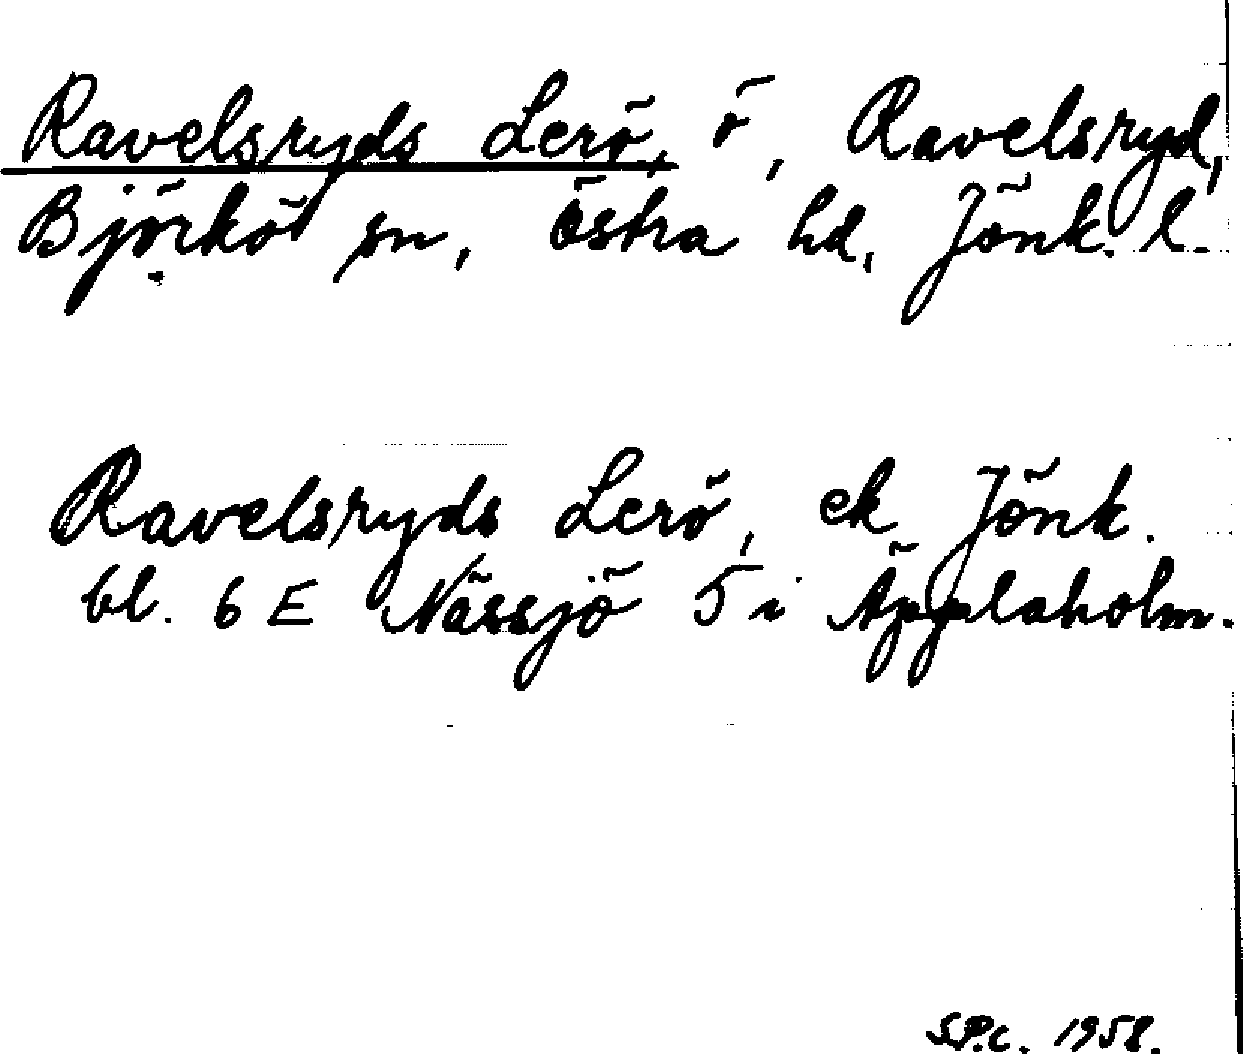 Ravelsryds Lerö, ö, Ravelsryd,
Björkö sn, Östra hd, Jönk. l.
Ravelsryds Lerö, ek Jönk.
bl. 6 E Nässjö 5 i Äpplaholm.
S.P.c. 1958.